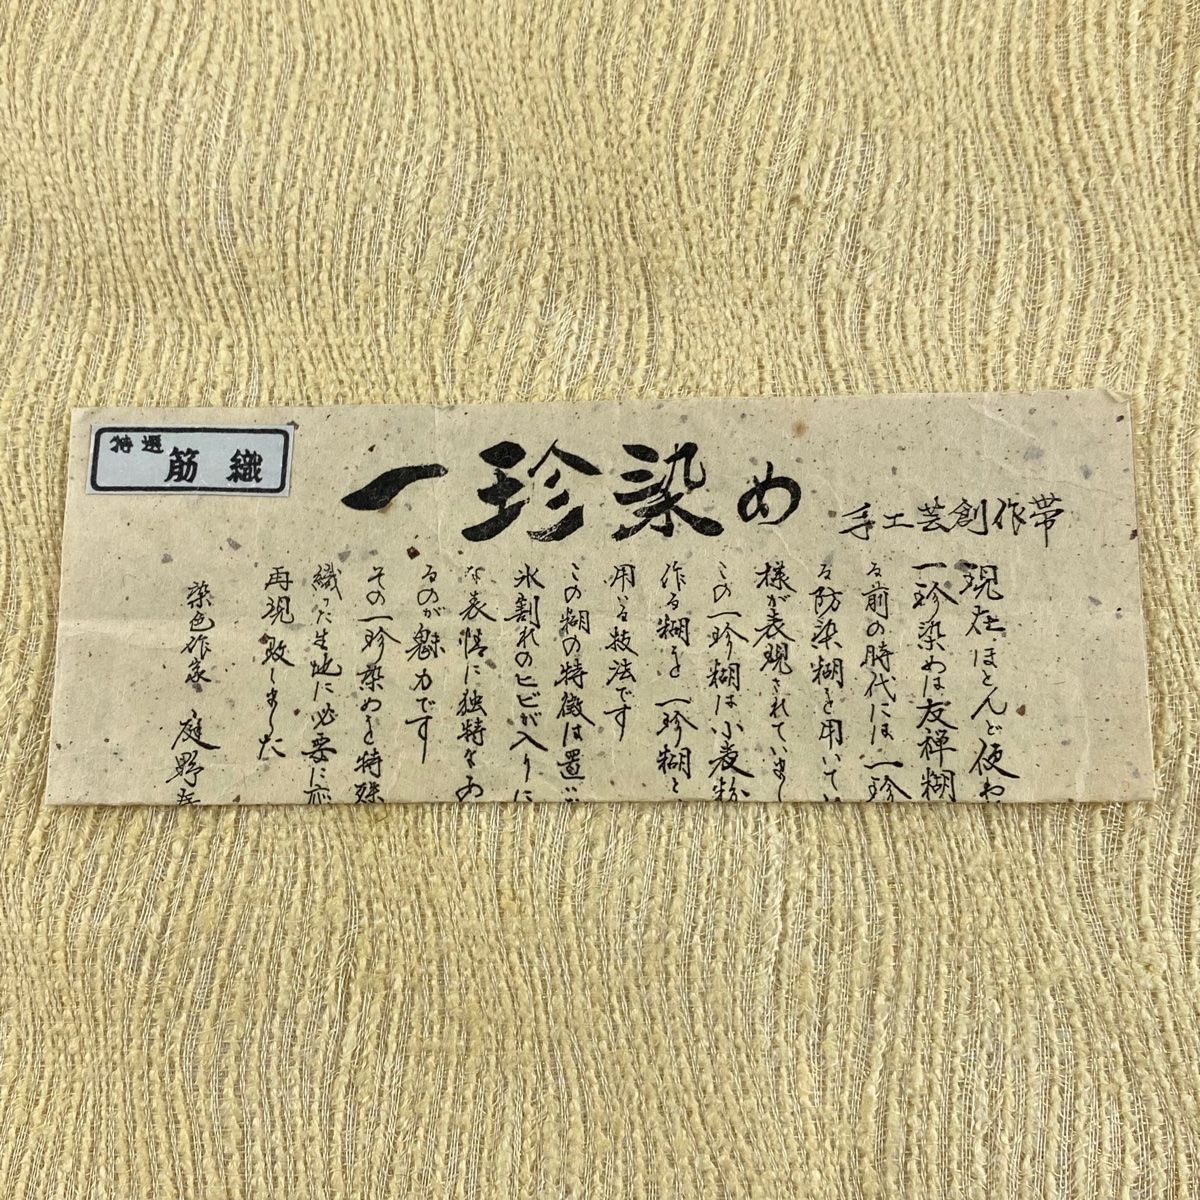 手工芸創作帯
一珍染め
特選
筋織
現在ほとんど使わ
一珍染めは友禅糊
る前の時代には一珍
る防染糊を用いてい
様が表現されていまし
この一珍糊は小麦粉
作る糊を一珍糊と
用いる技法です
この糊の特徴は置い
氷割れのヒビが入りに
な表情に独特なあ
るのが魅力です
その一珍染めを特殊
織った生地に必要に応
再現致しました
染色作家 庭野